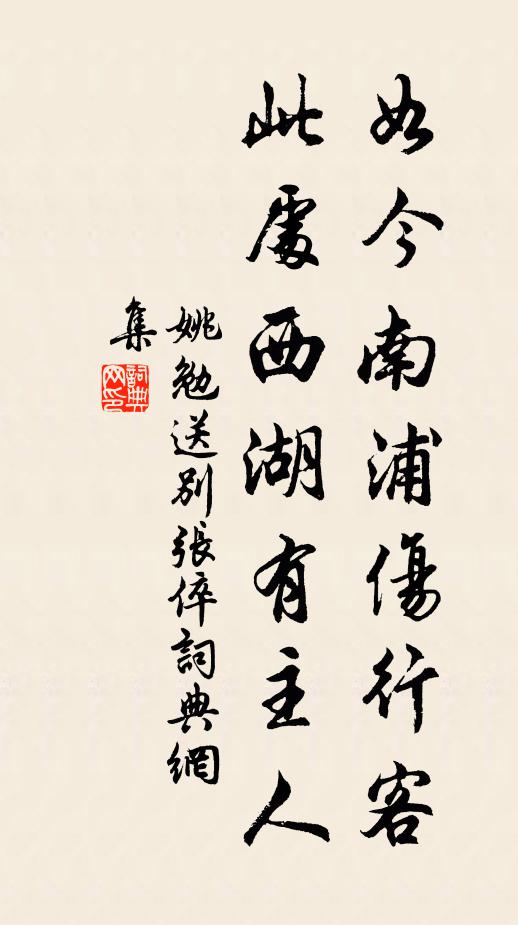 如今南浦傷行客
此處西湖有主人
姚勉送別張倅詞典網
集
詞典
网印